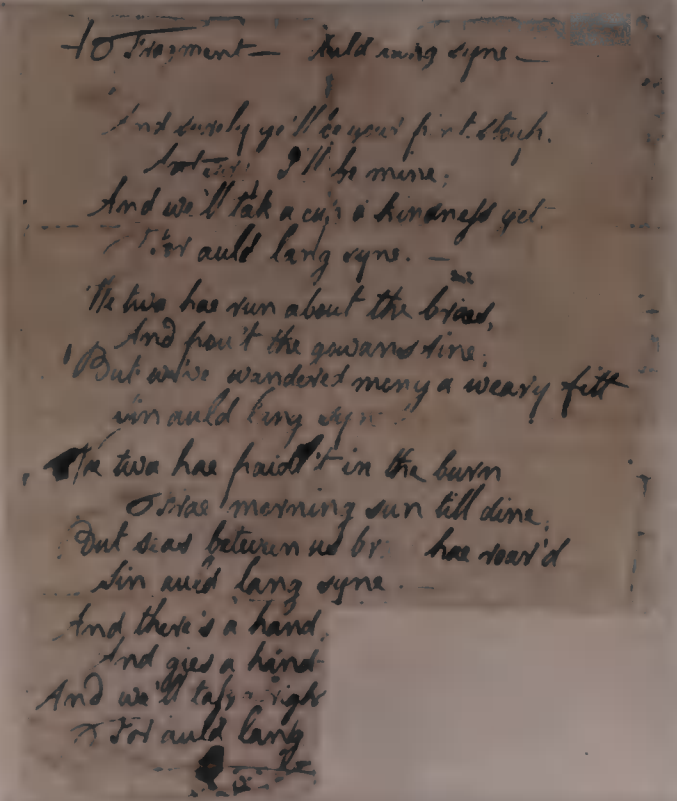 Fragment — Auld lang syne —
And surely ye'll be your pint stoup.
And I'll be mine;
And we'll tak a cup o kindness yet
For auld lang syne. —
We twa hae run about the braes,
And pou't the gowans fine;
But we've wandered mony a weary fitt
Sin auld lang syne
We twa hae paidl't in the burn
Frae morning sun till dine;
But seas between us br hae roar'd
Sin auld lang syne
And there's a hand,
And gies a hand
And we'll tak right
For auld lang